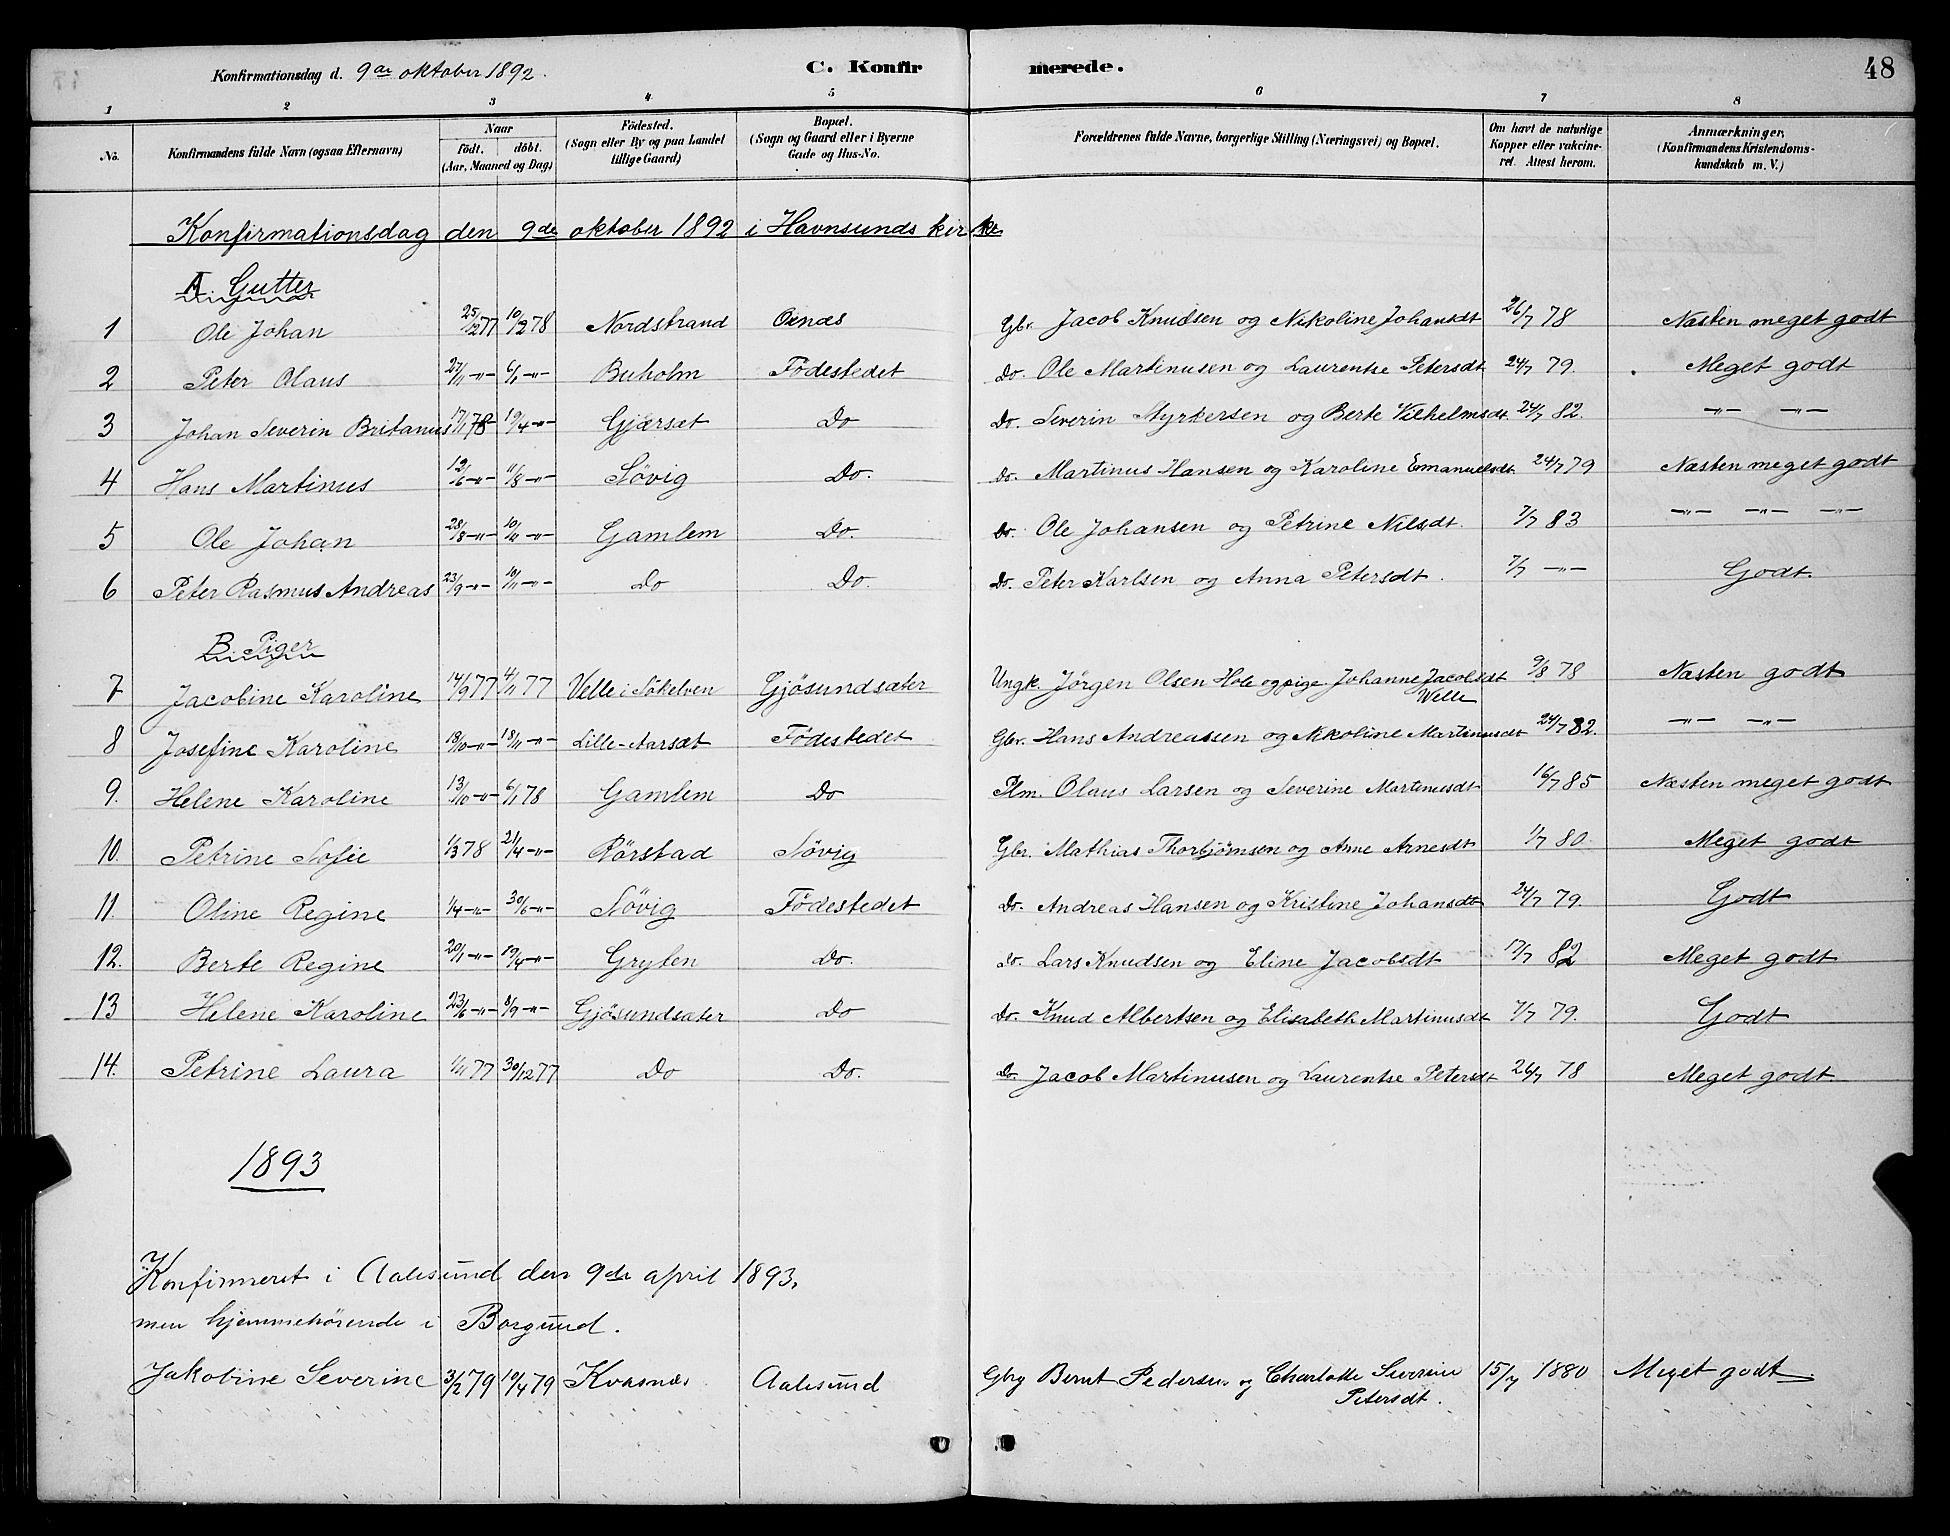 Konfirmationsdag d. 9de oktober 1892. C. Konfirmerede. 48
1 2 3 4 5 6 7 8
No. Konfirmandens fulde Navn (ogsaa Efternavn) Naar födt. döbt. (Aar, Maaned og Dag) Födested. (Sogn eller By og paa Landet tillige Gaard) Bopæl. (Sogn og Gaard eller i Byerne Gade og Hus-No. Forældrenes fulde Navne, borgerlige Stilling (Næringsvei) og Bopæl. Om havt de naturlige Kopper eller vakcineret. Attest herom. Anmærkninger. (Konfirmandens Kristendomskundskab m. V.)
Konfirmationsdag den 9de oktober 1892 i Havnsunds kirke
A. Gutter
1 Ole Johan 25/12 77 10/2 78 Nordstrand Oxnæs Gbr. Jacob Knudsen og Nikoline Johansdt 26/7 78 Næsten meget godt
2 Peter Olaus 27/11 -"- 6/1 -"- Buholm Födestedet Do. Ole Martinusen og Laurentse Petersdt 24/7 79. Meget godt
3 Johan Severin Britanus 17/1 78 19/4 -"- Gjærset Do Do. Severin Myrkersen og Berte Vilhelmsdt. 24/7 82. -"- -"-
4 Hans Martinus 12/6 -"- 11/8 -"- Sövig Do. Do. Martinus Hansen og Karoline Emanuelsdt. 24/7 79 Næsten meget godt
5 Ole Johan 28/8 -"- 10/11 -"- Gamlem Do. Do. Ole Johansen og Petrine Nilsdt. 7/7 83 -"- -"- -"-
6 Peter Rasmus Andreas 23/9 -"- 10/11 -"- Do Do Do. Peter Karlsen og Anna Petersdt. 7/7 -"- Godt.
B. Piger
7 Jacobine Karoline 14/9 77 4/11 77 Velle i Sökelven Gjösundsæter Ungk. Jörgen Olsen Hole og pige Johanne Jacobsdt Welle 9/8 78 Næsten godt
8 Josefine Karoline 18/10 -"- 18/11 -"- Lille-Aarsæt Födestedet Gbr. Hans Andreassen og Nikoline Martinusdt 24/7 82. -"- -"-
9. Helene Karoline 13/10 -"- 6/1 78 Gamlem Do Plm. Olaus Larsen og Severine Martinusdt 16/7 85 Næsten meget godt
10. Petrine Sofie 1/3 78 21/4 -"- Rörstad Sövig Gbr. Mathias Thorbjörnsen og Anne Arnesdt 1/7 80. Meget godt
11. Oline Regine 1/4 -"- 30/6 -"- Sövig Födestedet Do. Andreas Hansen og Kristine Johansdt 24/7 79. Godt
12. Berte Regine 20/1 -"- 19/4 -"- Gryten Do. Do. Lars Knudsen og Eline Jacobsdt 17/7 82 Meget godt
13 Helene Karoline 23/6 -"- 8/9 -"- Gjösundsæter Do Do. Knud Albertsen og Elisabeth Martinusdt 7/7 79. Godt
14. Petrine Laura 1/11 77 30/12 77 Do Do. Do. Jacob Martinusen og Laurentse Petersdt 26/7 78 Meget godt.
1893
Konfirmeret i Aalesund den 9de april 1893,
men hjemmehörende i Borgund.
Jakobine Severine 3/2 79 10/4 79 Kvasnæs Aalesund Gbr Bernt Pedersen og Charlotte Severine 15/7 1880 Meget godt.
Petersdt.